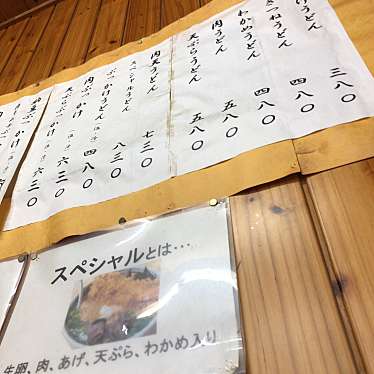 けうどん 三八〇
きつねうどん 四八〇
わかめうどん 四八〇
肉うどん 五八〇
天ぷらうどん 五八〇
肉天うどん 七三〇
スペシャルうどん 八三〇
ぶっかけ 四八〇
肉ぶっかけ 六三〇
天ぷらぶっかけ 六三〇
スペシャルとは…
生卵、肉、あげ、天ぷら、わかめ入り